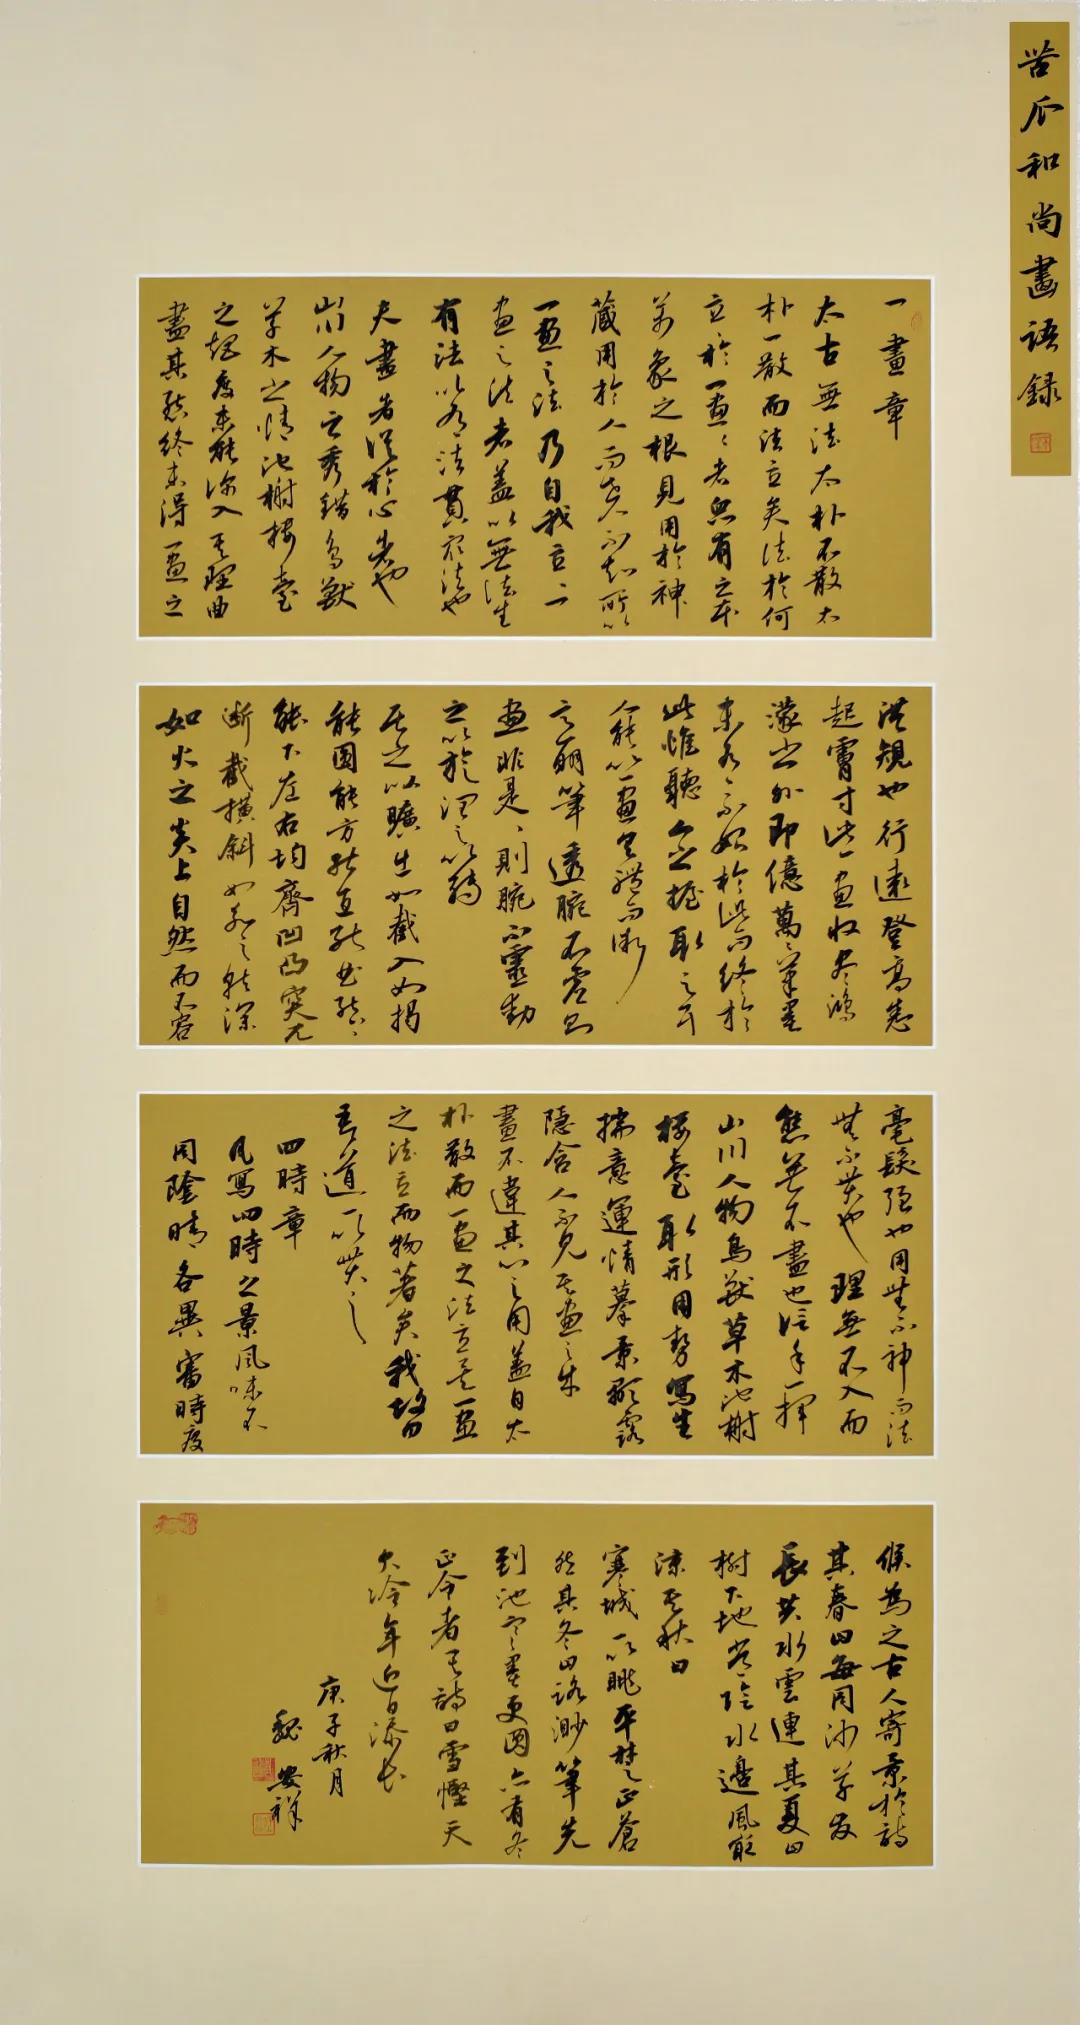 苦瓜和尚畫語錄
一畫章
太古無法太朴不散太
朴一散而法立矣法於何
立於一畫一畫者眾有之本
萬象之根見用於神
藏用於人而世人不知所以
一畫之法乃自我立一
畫之法者蓋以無法生
有法以有法貫眾法也
夫畫者從於心者也
山川人物之秀錯鳥獸
草木之情池榭樓臺
之矩度未能深入其理曲
盡其態終未得一畫之
洪規也行遠登高悉
起膚寸此一畫收盡鴻
濛之外即億萬萬筆墨
未有不始於此而終於
此惟聽人之握取之耳
人能以一畫具體而微
意明筆透腕不虛則
畫非是是則腕不靈動
之以旋潤之以轉
居之以曠出如截入如揭
能圓能方能直能曲能上
能下左右均齊凹凸突兀
斷截橫斜如水之就深
如火之炎上自然而不容
毫髮強也用無不神而法
無不貫也理無不入而
態無不盡也信手一揮
山川人物鳥獸草木池榭
樓臺取形用勢寫生
揣意運情摹景顯露
隱含人不見其畫之成
畫不違其心之用蓋自太
朴散而一畫之法立矣一畫
之法立而萬物著矣我故曰
吾道一以貫之
四時章
凡寫四時之景風味不
同陰晴各異審時度
候為之古人寄景於詩
其春曰每同沙草發
長共水雲連其夏曰
樹下地常陰水邊風最
涼其秋曰
寒城一以眺平楚正蒼
然其冬曰路渺筆先
到池寒墨更圓亦有冬
正令者其詩曰雪慳天
欠冷年近日添長
庚子秋月
魏安祥